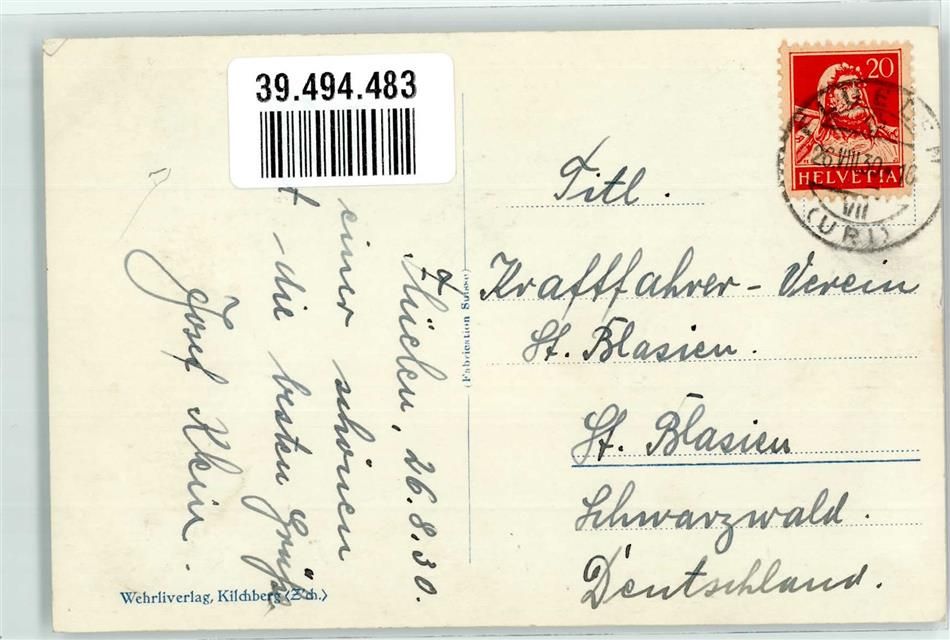 39.494.483
20
HELVETIA
FLÜELEN
26.VIII.30
VII
(URI)
Titl.
Kraftfahrer-Verein
St. Blasien.
St. Blasien
Schwarzwald.
Deutschland.
(Fabrication Suisse)
Flüelen, 26.8.30.
einer schönen
die besten Grüße
Josef Klein.
Wehrliverlag, Kilchberg (Zch.)